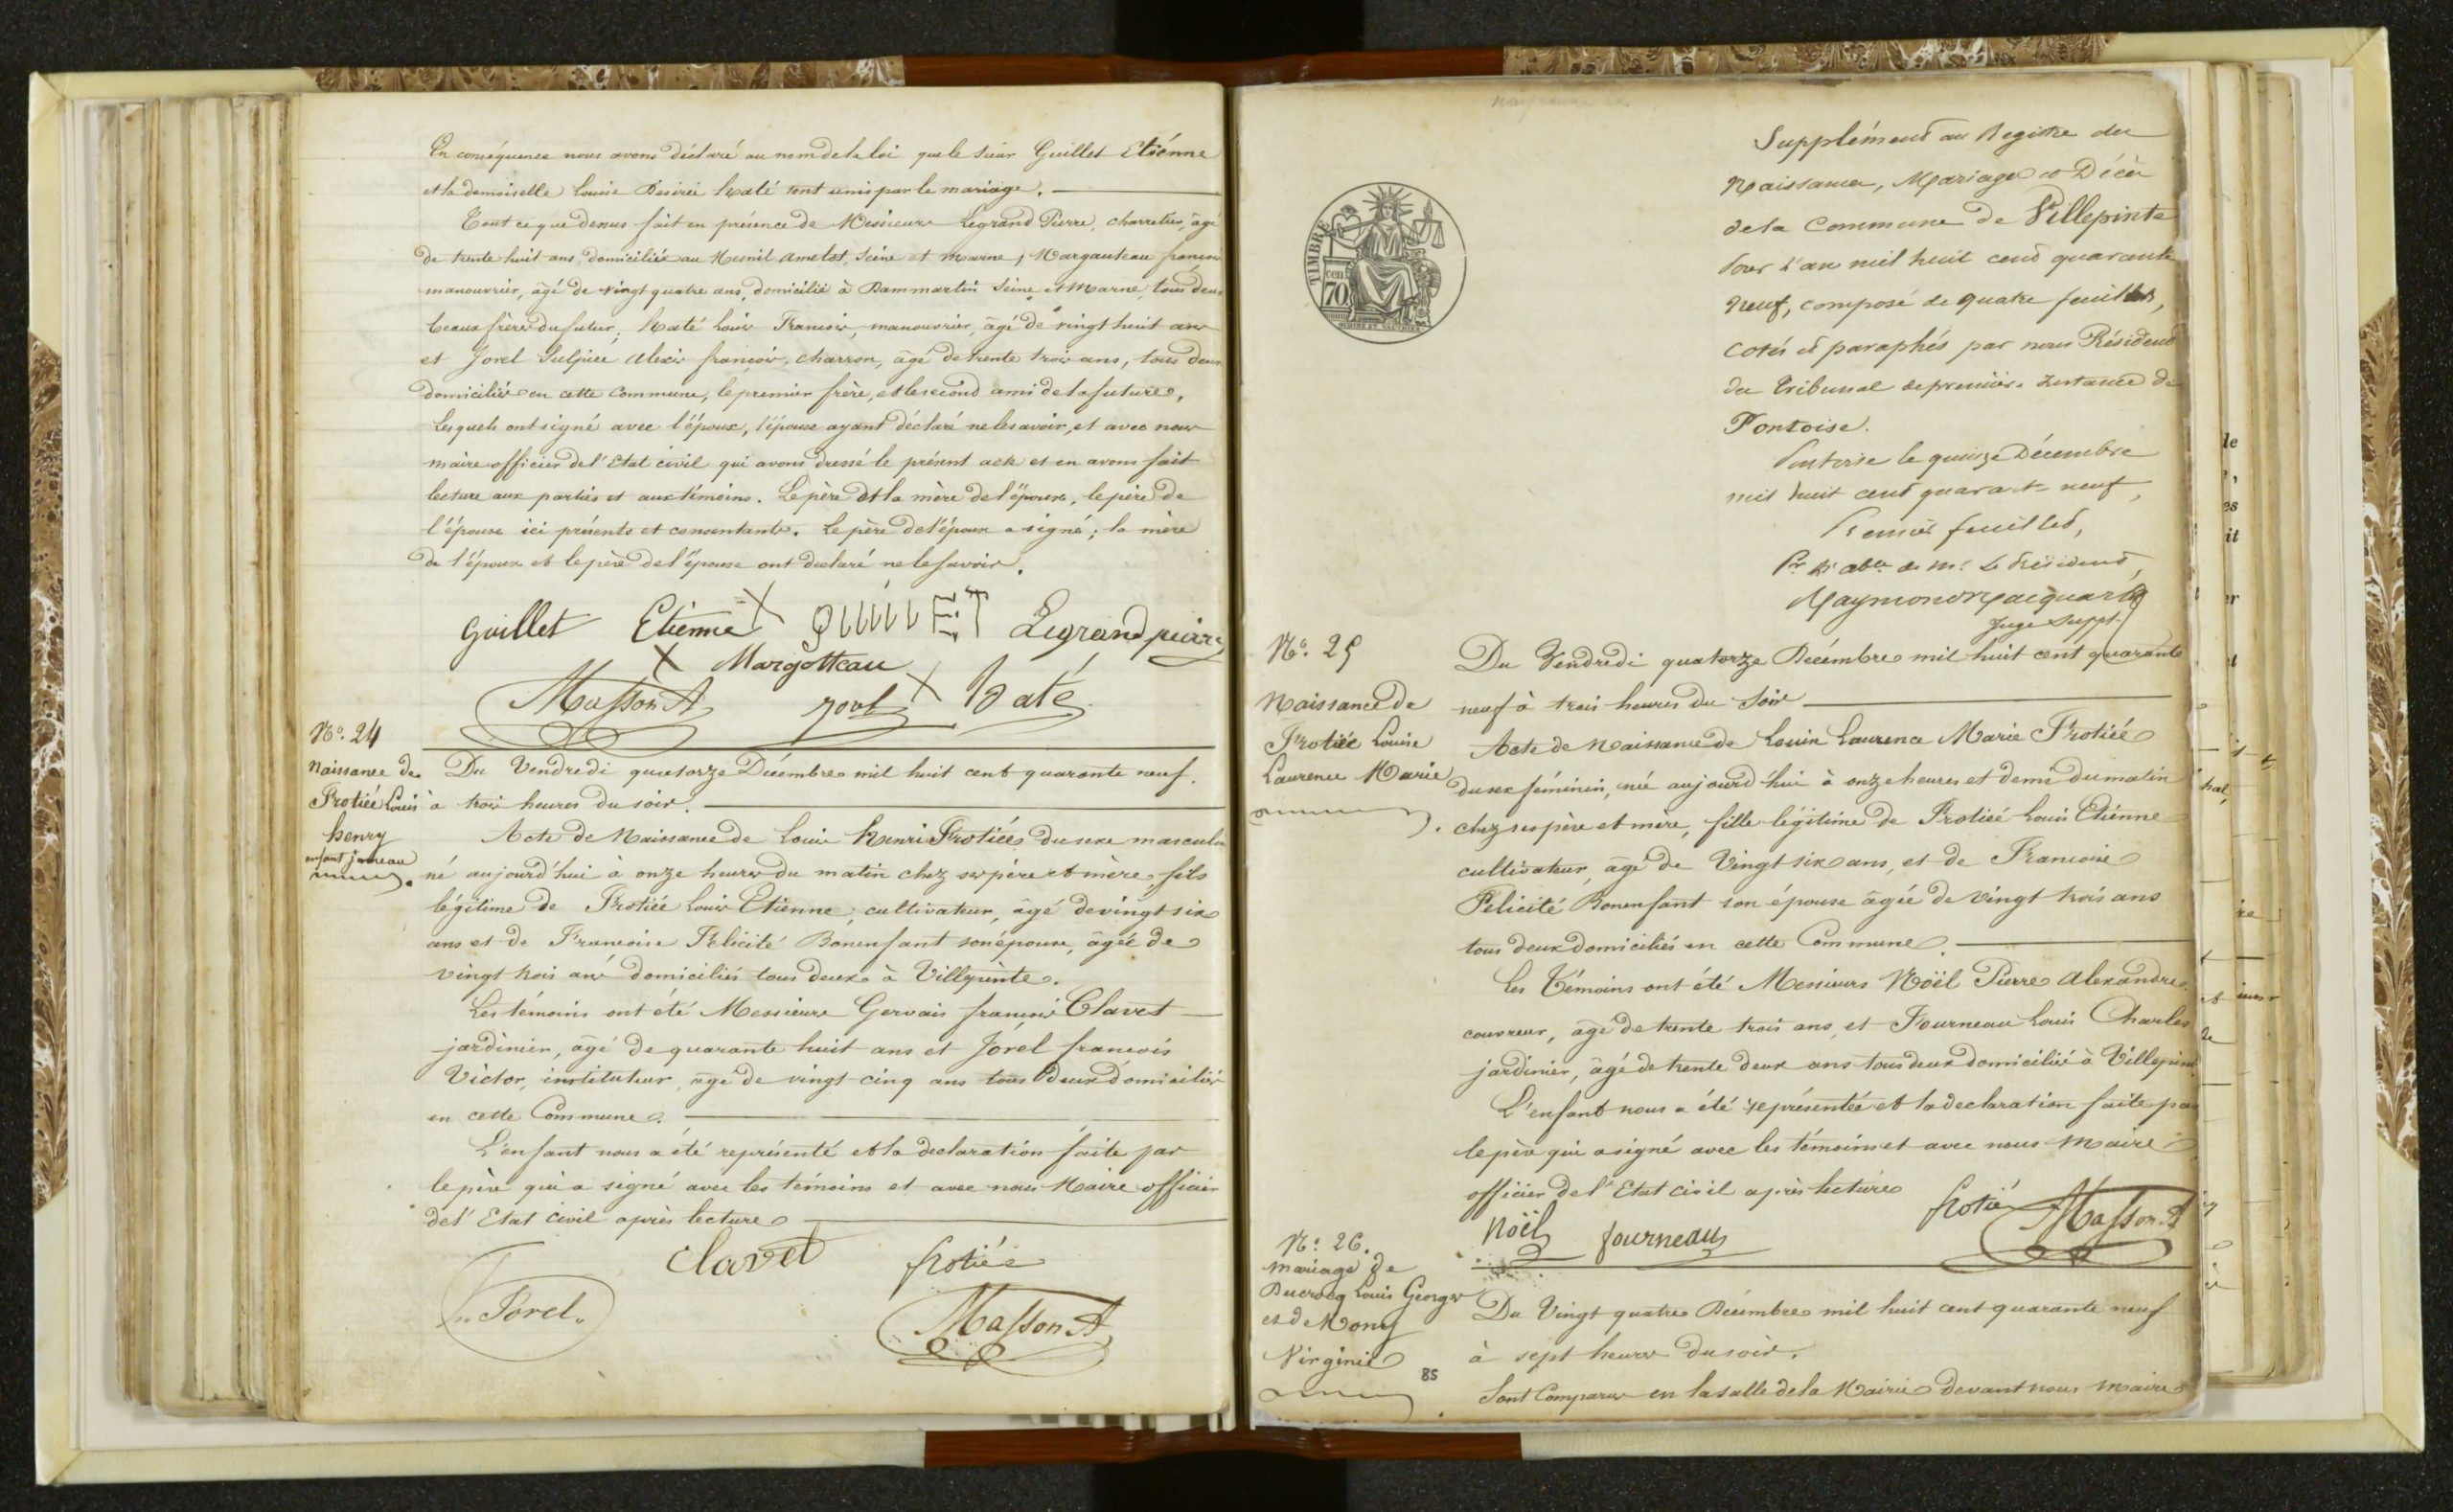 En conséquence nous avons déclaré au nom de la loi que le sieur Guillet Etiénne
et la demoiselle Louise Desirée haté sont unis par le mariage.
Tout ce que dessus fait en présence de Messieurs Legrand Pierre, charretier, âgé
de trente huit ans, domicilié au Mesnil amelot, Seine et marne; Margauteau francois
manouvrier, âgé de vingt quatre ans, domicilié à Dammartin Seine et Marne, tous deux
beaux frères du futur; haté Louis Francois, manouvrier, âgé de vingt huit ans
et Jorel Sulpice alexis françois, charron, âgé de trente trois ans, tous deux
domiciliés en cette Commune, le premier frère, et le second ami de la future,
Lesquels ont signé avec l'époux, l'épouse ayant déclaré ne le savoir, et avec nous
maire officier de l'Etat civil qui avons dressé le présent acte et en avons fait
lecture aux parties et aux témoins. Le père et la mère de l'époux, le père de
l'épouse ici présents et consentants. Le père de l'époux a signé; la mère
de l'époux et le père de l'épouse ont declaré ne le savoir.
Guillet Etienne X Legrand pierre
X Margotteau X
Masson A Jorel haté
No. 24
Naissance de
Frotiée Louis
henry
enfant jumeau
Du Vendredi quatorze Décembre mil huit cent quarante neuf.
à trois heures du soir.
Acte de Naissance de Louis henri Frotiée du sexe masculin
né aujourd'hui à onze heures du matin chez ses père et mère, fils
légitime de Frotiée Louis Etienne, cultivateur, âgé de vingt six
ans et de Francoise Felicité Bonenfant son épouse, âgée de
vingt trois ans domiciliés tous deux à Villepinte.
Les témoins ont été Messieurs Gervais françois Clavet
jardinier, âgé de quarante huit ans et Jorel francois
Victor, instituteur, âgé de vingt cinq ans tous deux domiciliés
en cette Commune.
L'enfant nous a été représenté et la declaration faite par
le père qui a signé avec les témoins et avec nous Maire officier
de l'Etat civil après lecture
Clavet frotiée
Jorel. Masson A
Supplément au Registre des
Naissances, Mariages et Décès
de la Commune de Villepinte
Pour l'an mil huit cent quarante
neuf, composé de quatre feuillets,
cotés et paraphés par nous Président
du Tribunal de première Instance de
Pontoise.
Pontoise le quinze Décembre
mil huit cent quarante neuf,
Premier feuillet,
Pr. de M. Le Président,
Juge Suppt.
TIMBRE
cen
70
No. 25
Naissance de
Frotiée Louise
Laurence Marie
Du Vendredi quatorze Décembre mil huit cent quarante
neuf à trois heures du Soir
Acte de Naissance de Louise Laurence Marie Frotiée
du sexe féminin, née aujourd'hui à onze heures et demi du matin
chez ses père et mère, fille légitime de Frotiée Louis Etienne
cultivateur, âgé de Vingt six ans, et de Francoise
Felicité Bonenfant son épouse âgée de vingt trois ans
tous deux domiciliés en cette Commune.
Les Témoins ont été Messieurs Noël Pierre alexandre
couvreur, âgé de trente trois ans, et Fourneau Louis Charles
jardinier, âgé de trente deux ans tous deux domiciliés à Villepinte
L'enfant nous a été représentée et la declaration faite par
le père qui a signé avec les témoins et avec nous Maire
officier de l'Etat civil après lecture
frotié Masson A
Noël fourneau
No. 26.
mariage de
Ducrocq Louis Georges
et de Mony
Virginie
Du Vingt quatre Décembre mil huit cent quarante neuf
à sept heures du soir.
85
Sont Comparus en la salle de la Mairie devant nous maire